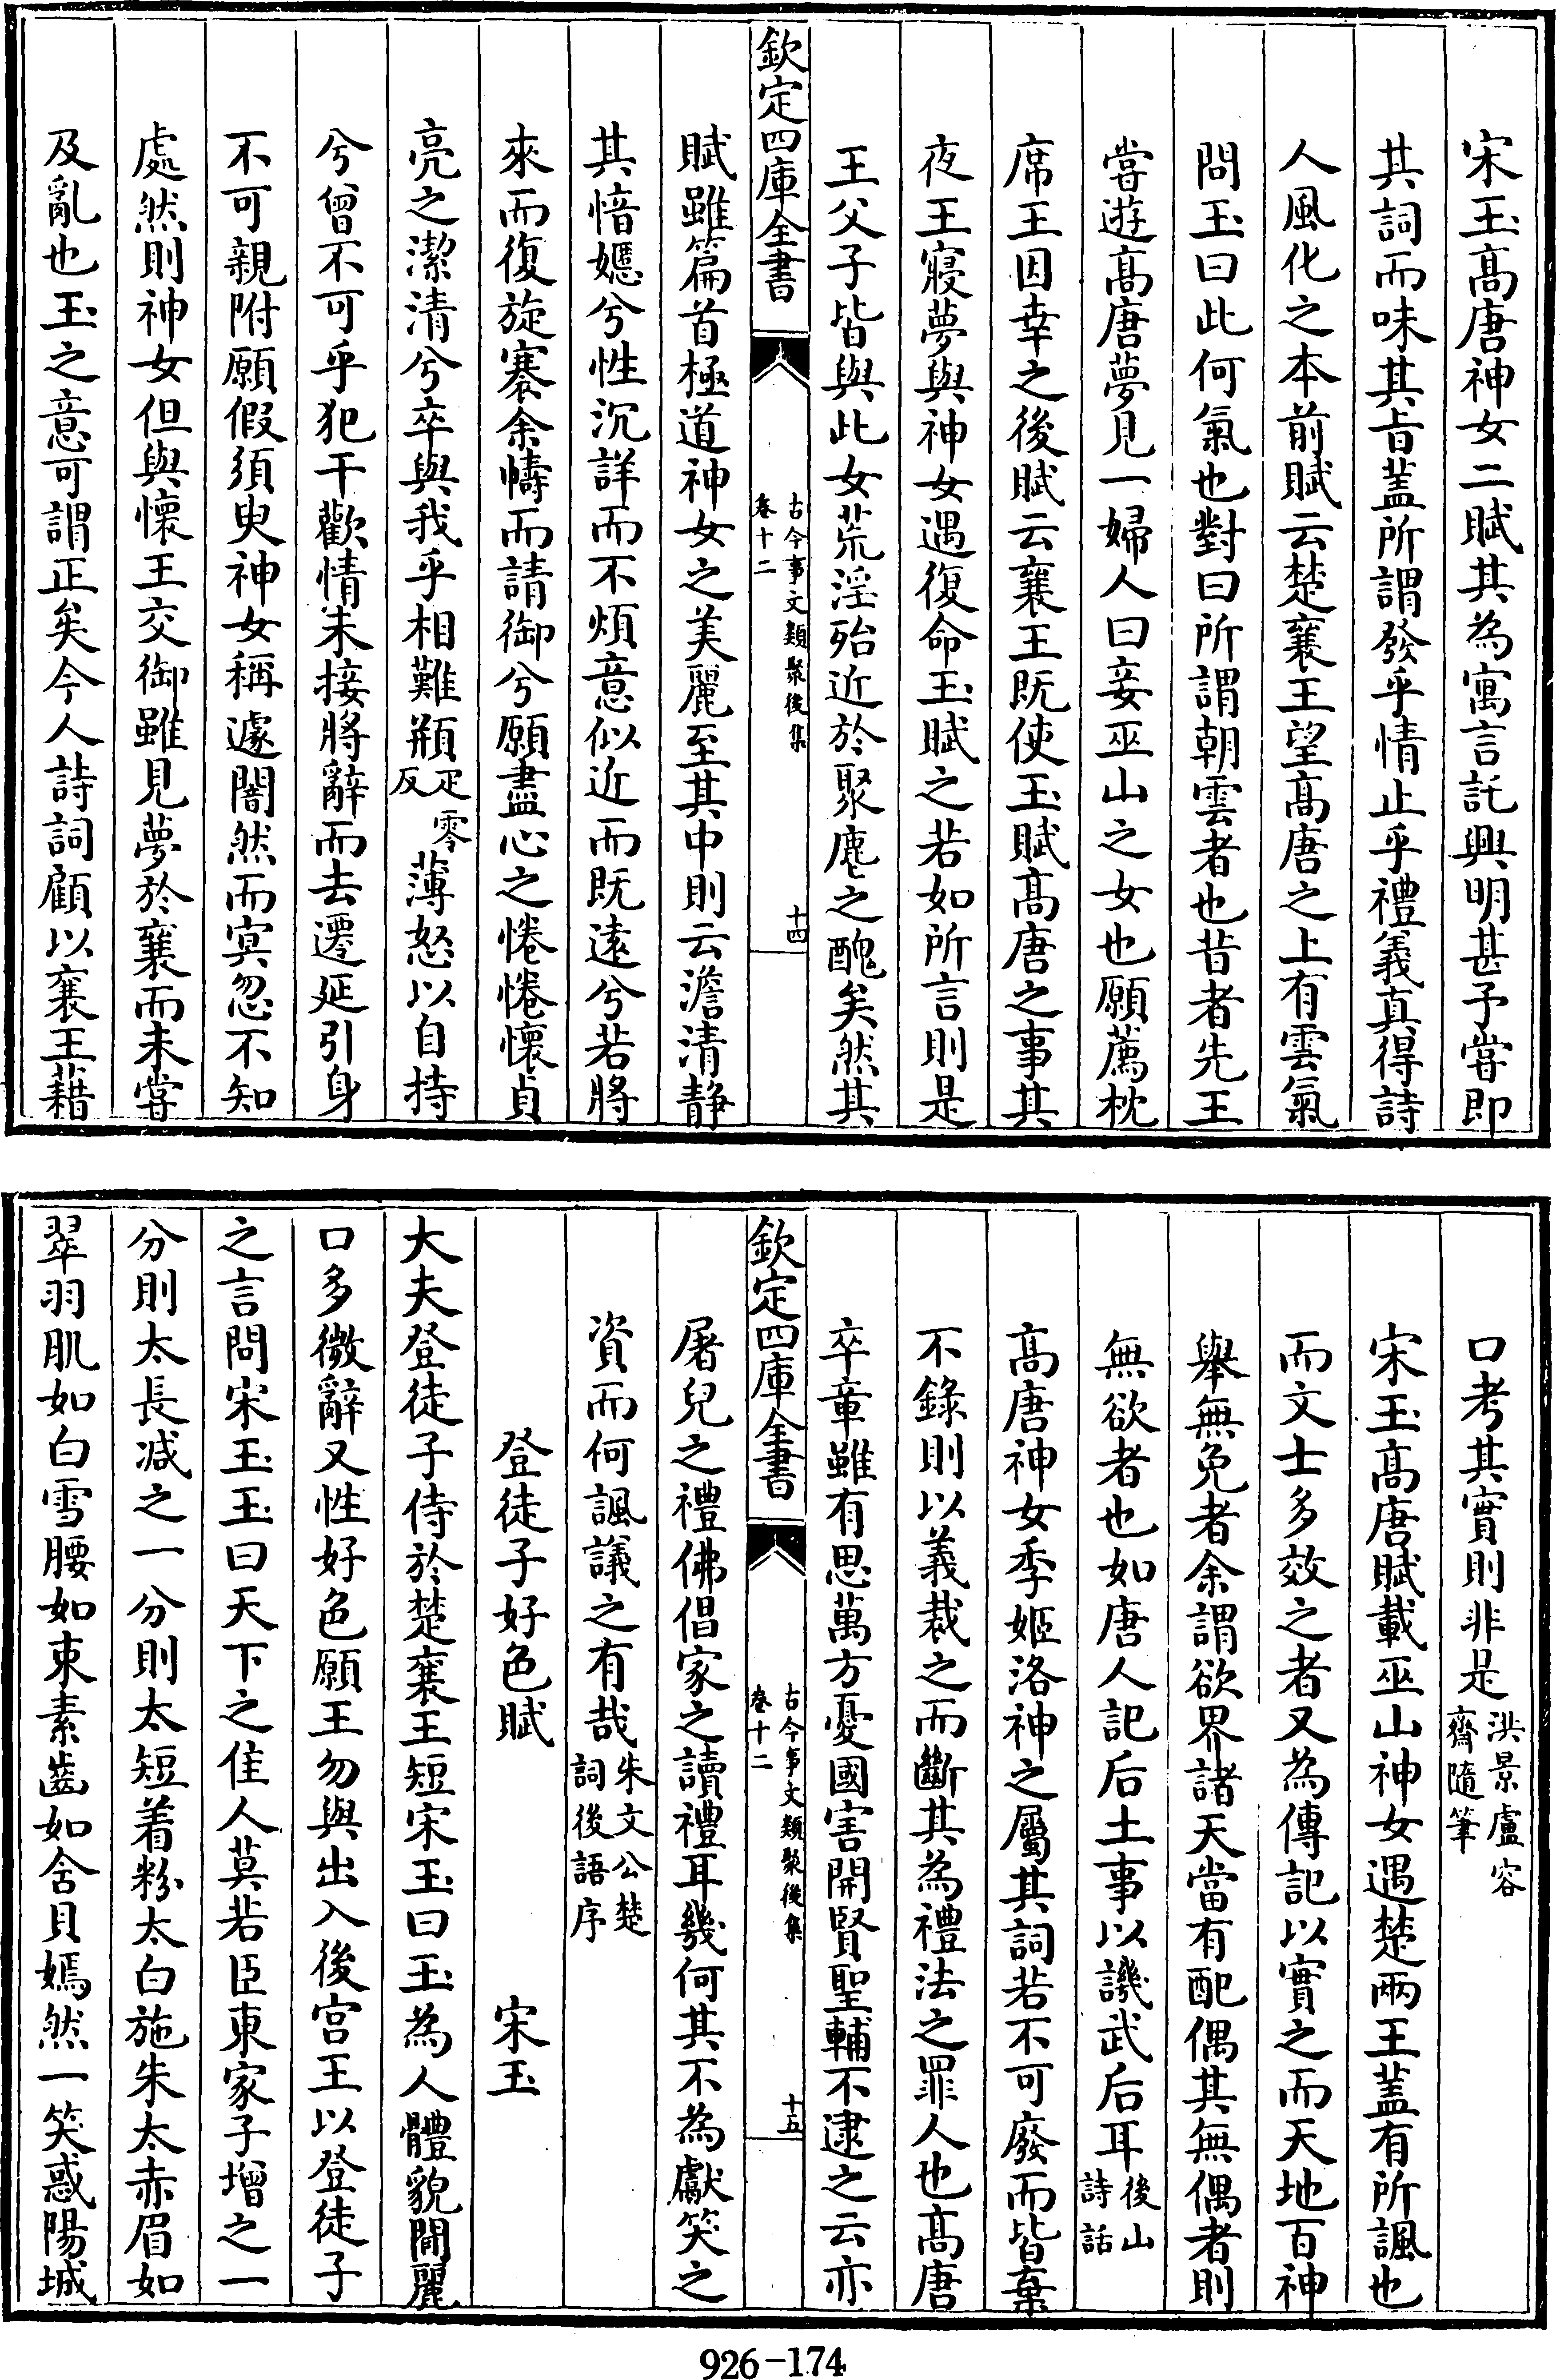 宋玉髙唐神女二賦其為寓言託興明甚予嘗即
其詞而味其旨蓋所謂發乎情止乎禮義真得詩
人風化之本前賦云楚襄王望髙唐之上有雲氣
問玉曰此何氣也對曰所謂朝雲者也昔者先王
嘗遊髙唐夢見一婦人曰妾巫山之女也願薦枕
席王因幸之後賦云襄王既使玉賦髙唐之事其
夜王寢夢與神女遇復命玉賦之若如所言則是
王父子皆與此女荒淫殆近於聚麀之醜矣然其
欽定四庫全書
古今事文類聚後集
卷十二
十四
賦雖篇首極道神女之美麗至其中則云澹清静
其愔嫕兮性沉詳而不煩意似近而既遠兮若將
來而復旋褰余幬而請御兮願盡心之惓惓懷貞
亮之潔清兮卒與我乎相難頩疋零反薄怒以自持
兮曾不可乎犯干歡情未接將辭而去遷延引身
不可親附願假須臾神女稱遽闇然而冥忽不知
處然則神女但與懷王交御雖見夢於襄而未嘗
及亂也玉之意可謂正矣今人詩詞顧以襄王藉
口考其實則非是洪景盧容齋隨筆
宋玉髙唐賦載巫山神女遇楚兩王蓋有所諷也
而文士多效之者又為傳記以實之而天地百神
舉無免者余謂欲界諸天當有配偶其無偶者則
無欲者也如唐人記后土事以譏武后耳後山詩話
髙唐神女季姬洛神之屬其詞若不可廢而皆棄
不錄則以義裁之而斷其為禮法之罪人也髙唐
卒章雖有思萬方憂國害開賢聖輔不逮之云亦
欽定四庫全書
古今事文類聚後集
卷十二
十五
屠兒之禮佛倡家之讀禮耳幾何其不為獻笑之
資而何諷議之有哉朱文公楚詞後語序
登徒子好色賦　宋玉
大夫登徒子侍於楚襄王短宋玉曰玉為人體貌閒麗
口多微辭又性好色願王勿與出入後宫王以登徒子
之言問宋玉玉曰天下之佳人莫若臣東家子增之一
分則太長减之一分則太短着粉太白施朱太赤眉如
翠羽肌如白雪腰如束素齒如含貝嫣然一笑惑陽城
926-174